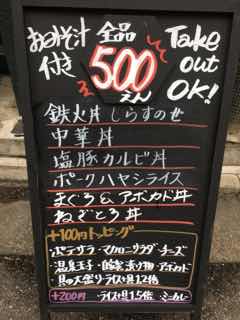 おみそ汁付き 全品 500えん Take out OK!
鉄火丼しらすのせ
中華丼
塩豚カルビ丼
ポークハヤシライス
まぐろ&アボカド丼
ねぎとろ丼
+100円トッピング
ポテサラ・マカロニサラダ・チーズ
温泉玉子・自家製漬け物・アボカド
具の大盛り・ライス・具1.2倍
+200円 ライス・具1.5倍